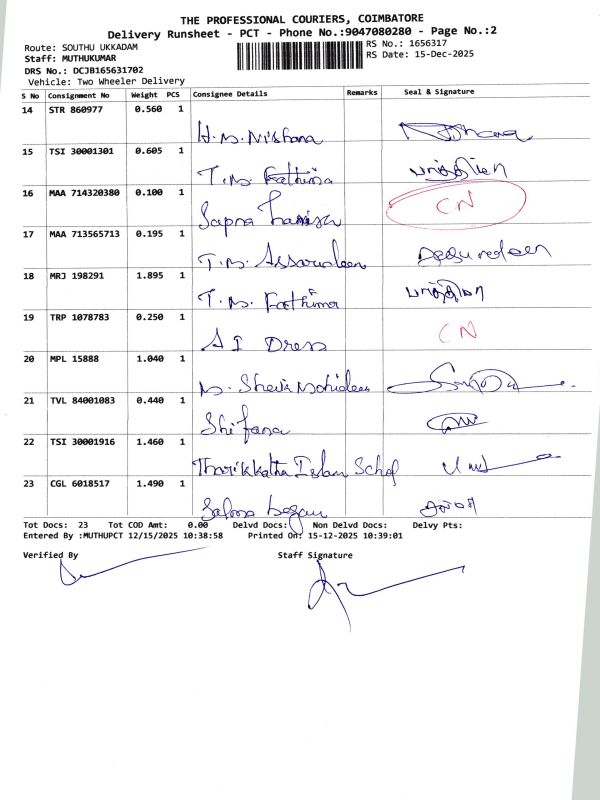 THE PROFESSIONAL COURIERS, COIMBATORE
Delivery Runsheet - PCT - Phone No.:9047080280 - Page No.:2
Route: SOUTHU UKKADAM
RS No.: 1656317
Staff: MUTHUKUMAR
RS Date: 15-Dec-2025
DRS No.: DCJB165631702
Vehicle: Two Wheeler Delivery
S No Consignment No Weight PCS Consignee Details Remarks Seal & Signature
14 STR 860977 0.560 1
H.M. Nishana
15 TSI 30001301 0.605 1
T.M. Fathima
16 MAA 714320380 0.100 1
Sapna CN
17 MAA 713565713 0.195 1
T.M. Assarudeen
18 MRJ 198291 1.895 1
T.M. Fathima
19 TRP 1078783 0.250 1
A I Dress CN
20 MPL 15888 1.040 1
M. Sheik Mohideen
21 TVL 84001083 0.440 1
Shifana
22 TSI 30001916 1.460 1
Islam
23 CGL 6018517 1.490 1
Salma begam
Tot Docs: 23 Tot COD Amt: 0.00 Delvd Docs: Non Delvd Docs: Delvy Pts:
Entered By :MUTHUPCT 12/15/2025 10:38:58 Printed On: 15-12-2025 10:39:01
Verified By Staff Signature